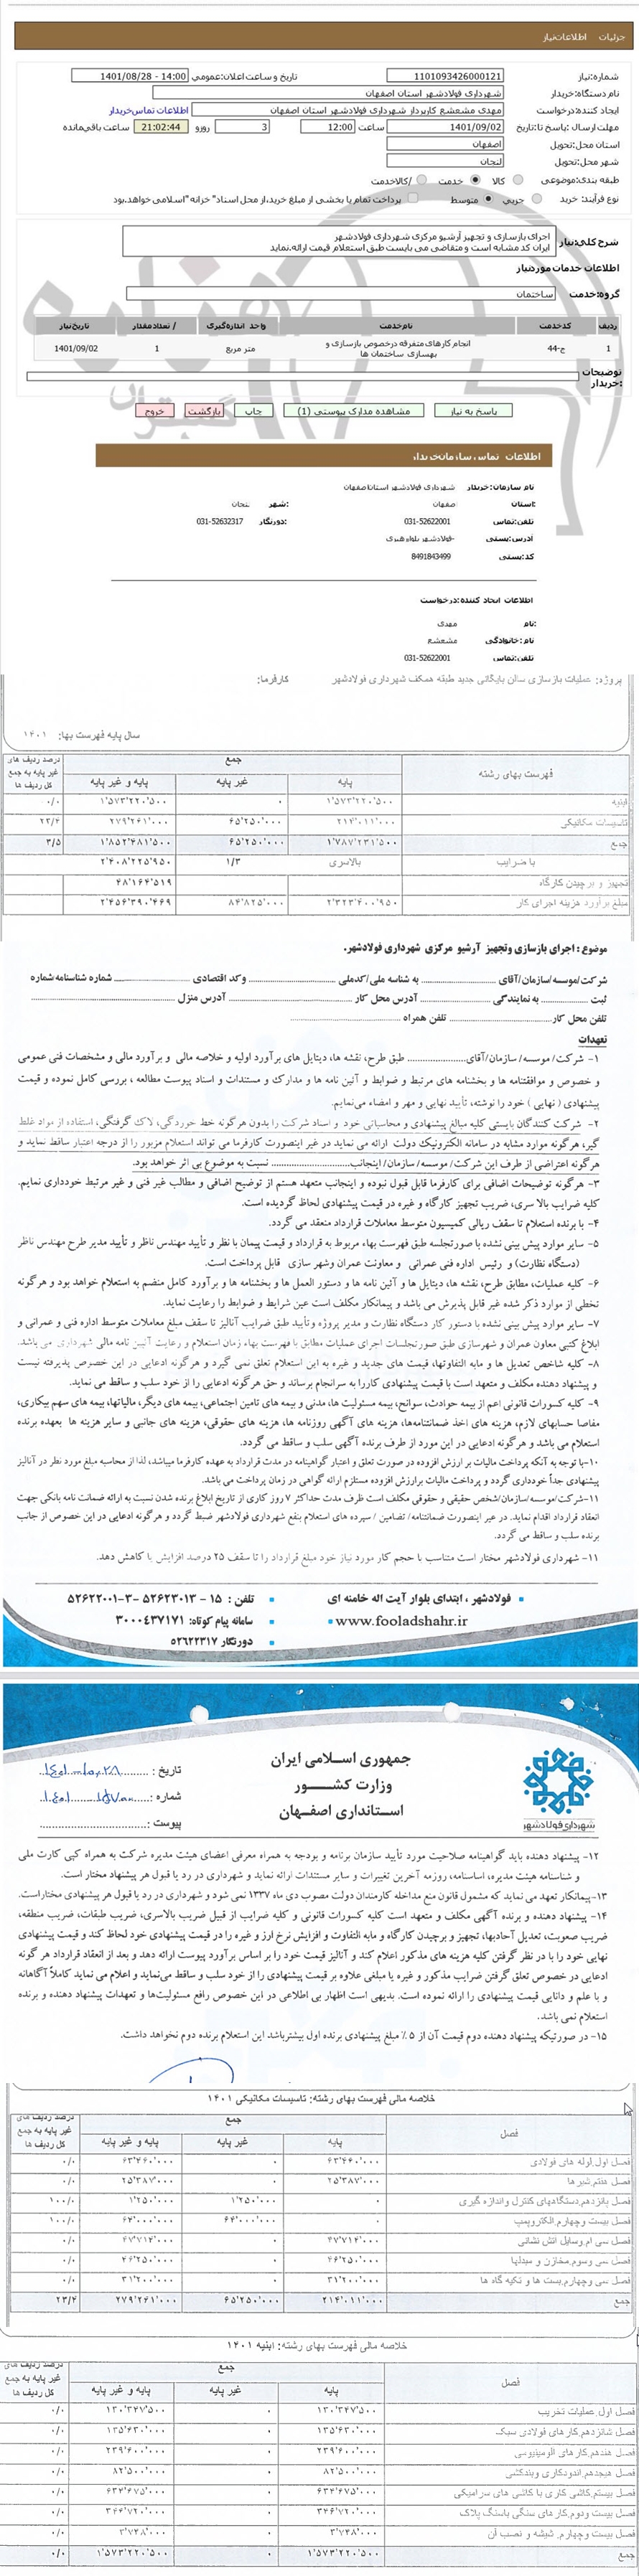 جزئیات اطلاعات نیاز
شماره نیاز: 1101093426000121
تاریخ و ساعت اعلان عمومی: 1401/08/28 - 14:00
نام دستگاه خریدار: شهرداری فولادشهر استان اصفهان
ایجاد کننده درخواست: مهدی مشعشع کارپرداز شهرداری فولادشهر استان اصفهان اطلاعات تماس خریدار
مهلت ارسال پاسخ تا: تاریخ 1401/09/02 ساعت 12:00 3 روز و 21:02:44 ساعت باقی مانده
استان محل تحویل: اصفهان
شهر محل تحویل: لنجان
طبقه بندی موضوعی: کالا خدمت کالا/خدمت
نوع فرآیند خرید: جزیی متوسط پرداخت تمام یا بخشی از مبلغ خرید،از محل اسناد "خزانه اسلامی" خواهد بود.
شرح کلی نیاز: اجرای بازسازی و تجهیز آرشیو مرکزی شهرداری فولادشهر
ایران کد مشابه است و متقاضی می بایست طبق استعلام قیمت ارائه نماید.
اطلاعات خدمات مورد نیاز
گروه خدمت: ساختمان
ردیف کد خدمت نام خدمت واحد اندازه گیری تعداد / مقدار تاریخ نیاز
1 ج-44 انجام کارهای متفرقه درخصوص بازسازی و بهسازی ساختمان ها متر مربع 1 1401/09/02
توضیحات خریدار:
پاسخ به نیاز مشاهده مدارک پیوستی (1) چاپ بازگشت خروج
اطلاعات تماس سازمان خریدار
نام سازمان خریدار: شهرداری فولادشهر استان اصفهان
استان: اصفهان شهر: لنجان
تلفن تماس: 031-52622001 دورنگار: 031-52632317
آدرس پستی: فولادشهر بلوار هبری-
کد پستی: 8491843499
اطلاعات ایجاد کننده درخواست:
نام: مهدی
نام خانوادگی: مشعشع
تلفن تماس: 031-52622001
پروژه: عملیات بازسازی سالن بایگانی جدید طبقه همکف شهرداری فولادشهر کارفرما:
سال پایه فهرست بها: ۱۴۰۱
فهرست بهای رشته جمع درصد ردیف های غیر پایه به جمع کل ردیف ها
پایه غیر پایه پایه و غیر پایه
ابنیه ۱٬۵۷۳٬۲۲۰٬۵۰۰ ۰ ۱٬۵۷۳٬۲۲۰٬۵۰۰ ۰/۰
تاسیسات مکانیکی ۲۱۴٬۰۱۱٬۰۰۰ ۶۵٬۲۵۰٬۰۰۰ ۲۷۹٬۲۶۱٬۰۰۰ ۲۳/۴
جمع ۱٬۷۸۷٬۲۳۱٬۵۰۰ ۶۵٬۲۵۰٬۰۰۰ ۱٬۸۵۲٬۴۸۱٬۵۰۰ ۳/۵
با ضرایب بالاسری ۱/۳ ۲٬۴۰۸٬۲۲۵٬۹۵۰
تجهیز و برچیدن کارگاه ۴۸٬۱۶۴٬۵۱۹
مبلغ برآورد هزینه اجرای کار ۲٬۳۲۳٬۴۰۰٬۹۵۰ ۸۴٬۸۲۵٬۰۰۰ ۲٬۴۵۶٬۳۹۰٬۴۶۹
موضوع : اجرای بازسازی وتجهیز آرشیو مرکزی شهرداری فولادشهر.
شرکت/موسسه/سازمان/آقای ............ به شناسه ملی/کدملی ............ وکد اقتصادی ............ شماره شناسنامه شماره
ثبت ............ به نمایندگی ............ آدرس محل کار ............ آدرس منزل ............
تلفن محل کار............ تلفن همراه ............
تعهدات
۱- شرکت/ موسسه/ سازمان/آقای............ طبق طرح، نقشه ها، دیتایل های برآورد اولیه و خلاصه مالی و برآورد مالی و مشخصات فنی عمومی
و خصوص و موافقتنامه ها و بخشنامه های مرتبط و ضوابط و آئین نامه ها و مدارک و مستندات و اسناد پیوست مطالعه ، بررسی کامل نموده و قیمت
پیشنهادی ( نهایی ) خود را نوشته، تأیید نهایی و مهر و امضاء می‌نمایم.
۲- شرکت کنندگان بایستی کلیه مبالغ پیشنهادی و محاسباتی خود و اسناد شرکت را بدون هرگونه خط خوردگی، لاک گرفتگی، استفاده از مواد غلط
گیر، هرگونه موارد مشابه در سامانه الکترونیک دولت ارائه می نماید در غیر اینصورت کارفرما می تواند استعلام مزبور را از درجه اعتبار ساقط نماید و
هرگونه اعتراضی از طرف این شرکت/ موسسه/ سازمان/ اینجانب............ نسبت به موضوع بی اثر خواهد بود.
۳- هرگونه توضیحات اضافی برای کارفرما قابل قبول نبوده و اینجانب متعهد هستم از توضیح اضافی و مطالب غیر فنی و غیر مرتبط خودداری نمایم.
کلیه ضرایب بالا سری، ضریب تجهیز کارگاه و غیره در قیمت پیشنهادی لحاظ گردیده است.
۴- با برنده استعلام تا سقف ریالی کمیسیون متوسط معاملات قرارداد منعقد می گردد.
۵- سایر موارد پیش بینی نشده با صورتجلسه طبق فهرست بهاء مربوط به قرارداد و قیمت پیمان با نظر و تأیید مهندس ناظر و تأیید مدیر طرح مهندس ناظر
(دستگاه نظارت) و رئیس اداره فنی عمرانی و معاونت عمران وشهر سازی قابل پرداخت است.
۶- کلیه عملیات، مطابق طرح، نقشه ها، دیتایل ها و آئین نامه ها و دستور العمل ها و بخشنامه ها و برآورد کامل منضم به استعلام خواهد بود و هرگونه
تخطی از موارد ذکر شده غیر قابل پذیرش می باشد و پیمانکار مکلف است عین شرایط و ضوابط را رعایت نماید.
۷- سایر موارد پیش بینی نشده با دستور کار دستگاه نظارت و مدیر پروژه و تأیید طبق ضرایب آنالیز تا سقف مبلغ معاملات متوسط اداره فنی و عمرانی و
ابلاغ کتبی معاون عمران و شهرسازی طبق صورتجلسات اجرای عملیات مطابق با فهرست بهاء زمان استعلام و رعایت آئین نامه مالی شهرداری می باشد.
۸- کلیه شاخص تعدیل ها و مابه التفاوتها، قیمت های جدید و غیره به این استعلام تعلق نمی گیرد و هرگونه ادعایی در این خصوص پذیرفته نیست
و پیشنهاد دهنده مکلف و متعهد است با قیمت پیشنهادی کاررا به سرانجام برساند و حق هرگونه ادعایی را از خود سلب و ساقط می نماید.
۹- کلیه کسورات قانونی اعم از بیمه حوادث، سوانح، بیمه مسئولیت ها، مدنی و بیمه های تامین اجتماعی، بیمه های دیگر، مالیاتها، بیمه های سهم بیکاری،
مفاصا حسابهای لازم، هزینه های اخذ ضمانتنامه‌ها، هزینه های آگهی روزنامه ها، هزینه های حقوقی، هزینه های جانبی و سایر هزینه ها بعهده برنده
استعلام می باشد و هرگونه ادعایی در این مورد از طرف برنده آگهی سلب و ساقط می گردد.
۱۰-با توجه به آنکه پرداخت مالیات بر ارزش افزوده در صورت تعلق و اعتبار گواهینامه در مدت قرارداد به عهده کارفرما میباشد، لذا از محاسبه مبلغ مورد نظر در آنالیز
پیشنهادی جداً خودداری گردد و پرداخت مالیات برارزش افزوده مستلزم ارائه گواهی در زمان پرداخت می باشد.
۱۱-شرکت/موسسه/سازمان/شخص حقیقی و حقوقی مکلف است ظرف مدت حداکثر ۷ روز کاری از تاریخ ابلاغ برنده شدن نسبت به ارائه ضمانت نامه بانکی جهت
انعقاد قرارداد اقدام نماید. در غیر اینصورت ضمانتنامه/ تضامین / سپرده های استعلام بنفع شهرداری فولادشهر ضبط گردد و هرگونه ادعایی در این خصوص از جانب
برنده سلب و ساقط می گردد.
۱۱- شهرداری فولادشهر مختار است متناسب با حجم کار مورد نیاز خود مبلغ قرارداد را تا سقف ۲۵ درصد افزایش یا کاهش دهد.
فولادشهر ، ابتدای بلوار آیت اله خامنه ای
تلفن : ۱۵ - ۵۲۶۲۳۰۱۳ -۳-۵۲۶۲۲۰۰۱
www.fooladshahr.ir
سامانه پیام کوتاه: ۳۰۰۰۴۳۷۱۷۱
دورنگار ۵۲۶۲۲۳۱۷
جمهوری اسـلامی ایران
وزارت کشـــور
اسـتانداری اصفهـان
شهرداری فولادشهر
تاریخ :
شماره :
پیوست :
۱۲- پیشنهاد دهنده باید گواهینامه صلاحیت مورد تأیید سازمان برنامه و بودجه به همراه معرفی اعضای هیئت مدیره شرکت به همراه کپی کارت ملی
و شناسنامه هیئت مدیره، اساسنامه، روزنامه آخرین تغییرات و سایر مستندات ارائه نماید و شهرداری در رد یا قبول هر پیشنهاد مختار است.
۱۳-پیمانکار تعهد می نماید که مشمول قانون منع مداخله کارمندان دولت مصوب دی ماه ۱۳۳۷ نمی شود و شهرداری در رد یا قبول هر پیشنهادی مختاراست.
۱۴- پیشنهاد دهنده و برنده آگهی مکلف و متعهد است کلیه کسورات قانونی و کلیه ضرایب از قبیل ضریب بالاسری، ضریب طبقات، ضریب منطقه،
ضریب صعوبت، تعدیل آحادبها، تجهیز و برچیدن کارگاه و مابه التفاوت و افزایش نرخ ارز و غیره را در قیمت پیشنهادی خود لحاظ کند و قیمت پیشنهادی
نهایی خود را با در نظر گرفتن کلیه هزینه های مذکور اعلام کند و آنالیز قیمت خود را بر اساس برآورد پیوست ارائه دهد و بعد از انعقاد قرارداد هر گونه
ادعایی در خصوص تعلق گرفتن ضرایب مذکور و غیره یا مبلغی علاوه بر قیمت پیشنهادی را از خود سلب و ساقط می‌نماید و اعلام می نماید کاملاً آگاهانه
و با علم و دانایی قیمت پیشنهادی را ارائه نموده است. بدیهی است اظهار بی اطلاعی در این خصوص رافع مسئولیت‌ها و تعهدات پیشنهاد دهنده و برنده
استعلام نمی باشد.
۱۵- در صورتیکه پیشنهاد دهنده دوم قیمت آن از ۵٪ مبلغ پیشنهادی برنده اول بیشترباشد این استعلام برنده دوم نخواهد داشت.
خلاصه مالی فهرست بهای رشته: تاسیسات مکانیکی ۱۴۰۱
فصل جمع درصد ردیف های غیر پایه به جمع کل ردیف ها
پایه غیر پایه پایه و غیر پایه
فصل اول.لوله های فولادی ۶۳٬۴۶۰٬۰۰۰ ۰ ۶۳٬۴۶۰٬۰۰۰ ۰/۰
فصل هفتم.شیرها ۲۵٬۳۸۷٬۰۰۰ ۰ ۲۵٬۳۸۷٬۰۰۰ ۰/۰
فصل پانزدهم.دستگاههای کنترل واندازه گیری ۰ ۱٬۲۵۰٬۰۰۰ ۱٬۲۵۰٬۰۰۰ ۱۰۰/۰
فصل بیست وچهارم.الکتروپمپ ۰ ۶۴٬۰۰۰٬۰۰۰ ۶۴٬۰۰۰٬۰۰۰ ۱۰۰/۰
فصل سی ام.وسایل آتش نشانی ۴۷٬۷۱۴٬۰۰۰ ۰ ۴۷٬۷۱۴٬۰۰۰ ۰/۰
فصل سی وسوم.مخازن و مبدلها ۴۶٬۲۵۰٬۰۰۰ ۰ ۴۶٬۲۵۰٬۰۰۰ ۰/۰
فصل سی وچهارم.بست ها و تکیه گاه ها ۳۱٬۲۰۰٬۰۰۰ ۰ ۳۱٬۲۰۰٬۰۰۰ ۰/۰
جمع ۲۱۴٬۰۱۱٬۰۰۰ ۶۵٬۲۵۰٬۰۰۰ ۲۷۹٬۲۶۱٬۰۰۰ ۲۳/۴
خلاصه مالی فهرست بهای رشته: ابنیه ۱۴۰۱
فصل جمع درصد ردیف های غیر پایه به جمع کل ردیف ها
پایه غیر پایه پایه و غیر پایه
فصل اول.عملیات تخریب ۱۳۰٬۳۴۷٬۵۰۰ ۰ ۱۳۰٬۳۴۷٬۵۰۰ ۰/۰
فصل شانزدهم.کارهای فولادی سبک ۱۳۵٬۶۳۰٬۰۰۰ ۰ ۱۳۵٬۶۳۰٬۰۰۰ ۰/۰
فصل هفدهم.کارهای آلومینیومی ۲۳۹٬۶۰۰٬۰۰۰ ۰ ۲۳۹٬۶۰۰٬۰۰۰ ۰/۰
فصل هیجدهم.اندودکاری وبندکشی ۸۲٬۵۰۰٬۰۰۰ ۰ ۸۲٬۵۰۰٬۰۰۰ ۰/۰
فصل بیستم.کاشی کاری با کاشی های سرامیکی ۶۳۴٬۶۷۵٬۰۰۰ ۰ ۶۳۴٬۶۷۵٬۰۰۰ ۰/۰
فصل بیست ودوم.کارهای سنگی باسنگ پلاک ۳۴۶٬۷۲۰٬۰۰۰ ۰ ۳۴۶٬۷۲۰٬۰۰۰ ۰/۰
فصل بیست وچهارم. شیشه و نصب آن ۳٬۷۴۸٬۰۰۰ ۰ ۳٬۷۴۸٬۰۰۰ ۰/۰
جمع ۱٬۵۷۳٬۲۲۰٬۵۰۰ ۰ ۱٬۵۷۳٬۲۲۰٬۵۰۰ ۰/۰